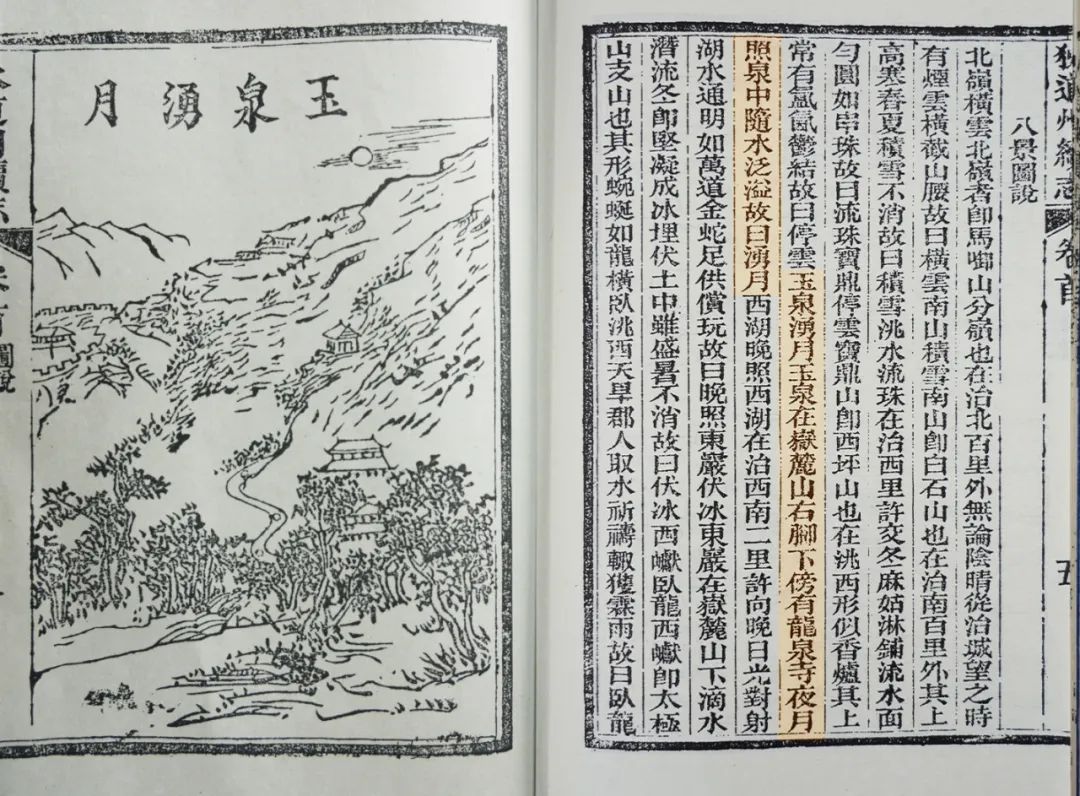 狄道州續志 卷首 五
八景圖說
北嶺橫雲北嶺者卽馬啣山分嶺也在治北百里外無論陰晴從治城望之時
有煙雲橫截山腰故曰橫雲南山積雪南山卽白石山也在治南百里外其上
高寒春夏積雪不消故曰積雪洮水流珠在治西里許交冬麻姑淋鋪流水面
勻圓如串珠故曰流珠寶鼎停雲寶鼎山卽西坪山也在洮西形似香爐其上
常有氤氳鬱結故曰停雲玉泉湧月玉泉在嶽麓山右腳下傍有龍泉寺夜月
照泉中隨水泛溢故曰湧月西湖晚照西湖在治西南二里許向晚日光對射
湖水通明如萬道金蛇足供償玩故曰晚照東巖伏冰東巖在嶽麓山下滴水
潛流冬卽堅凝成冰埋伏土中雖盛暑不消故曰伏冰西巘臥龍西巘卽太極
山支山也其形蜿蜒如龍橫臥洮西天旱郡人取水祈禱輙獲霖雨故曰臥龍
玉泉湧月
圖說